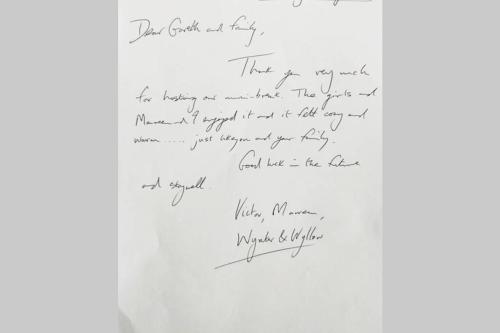 Dear Gareth and family,
Thank you very much
for hosting our mini-break. The girls and
Maureen and I enjoyed it and it felt cosy and
warm ..... just like you and your family.
Good luck in the future
and stay well.
Victor, Maureen,
Wynter & Wyllow